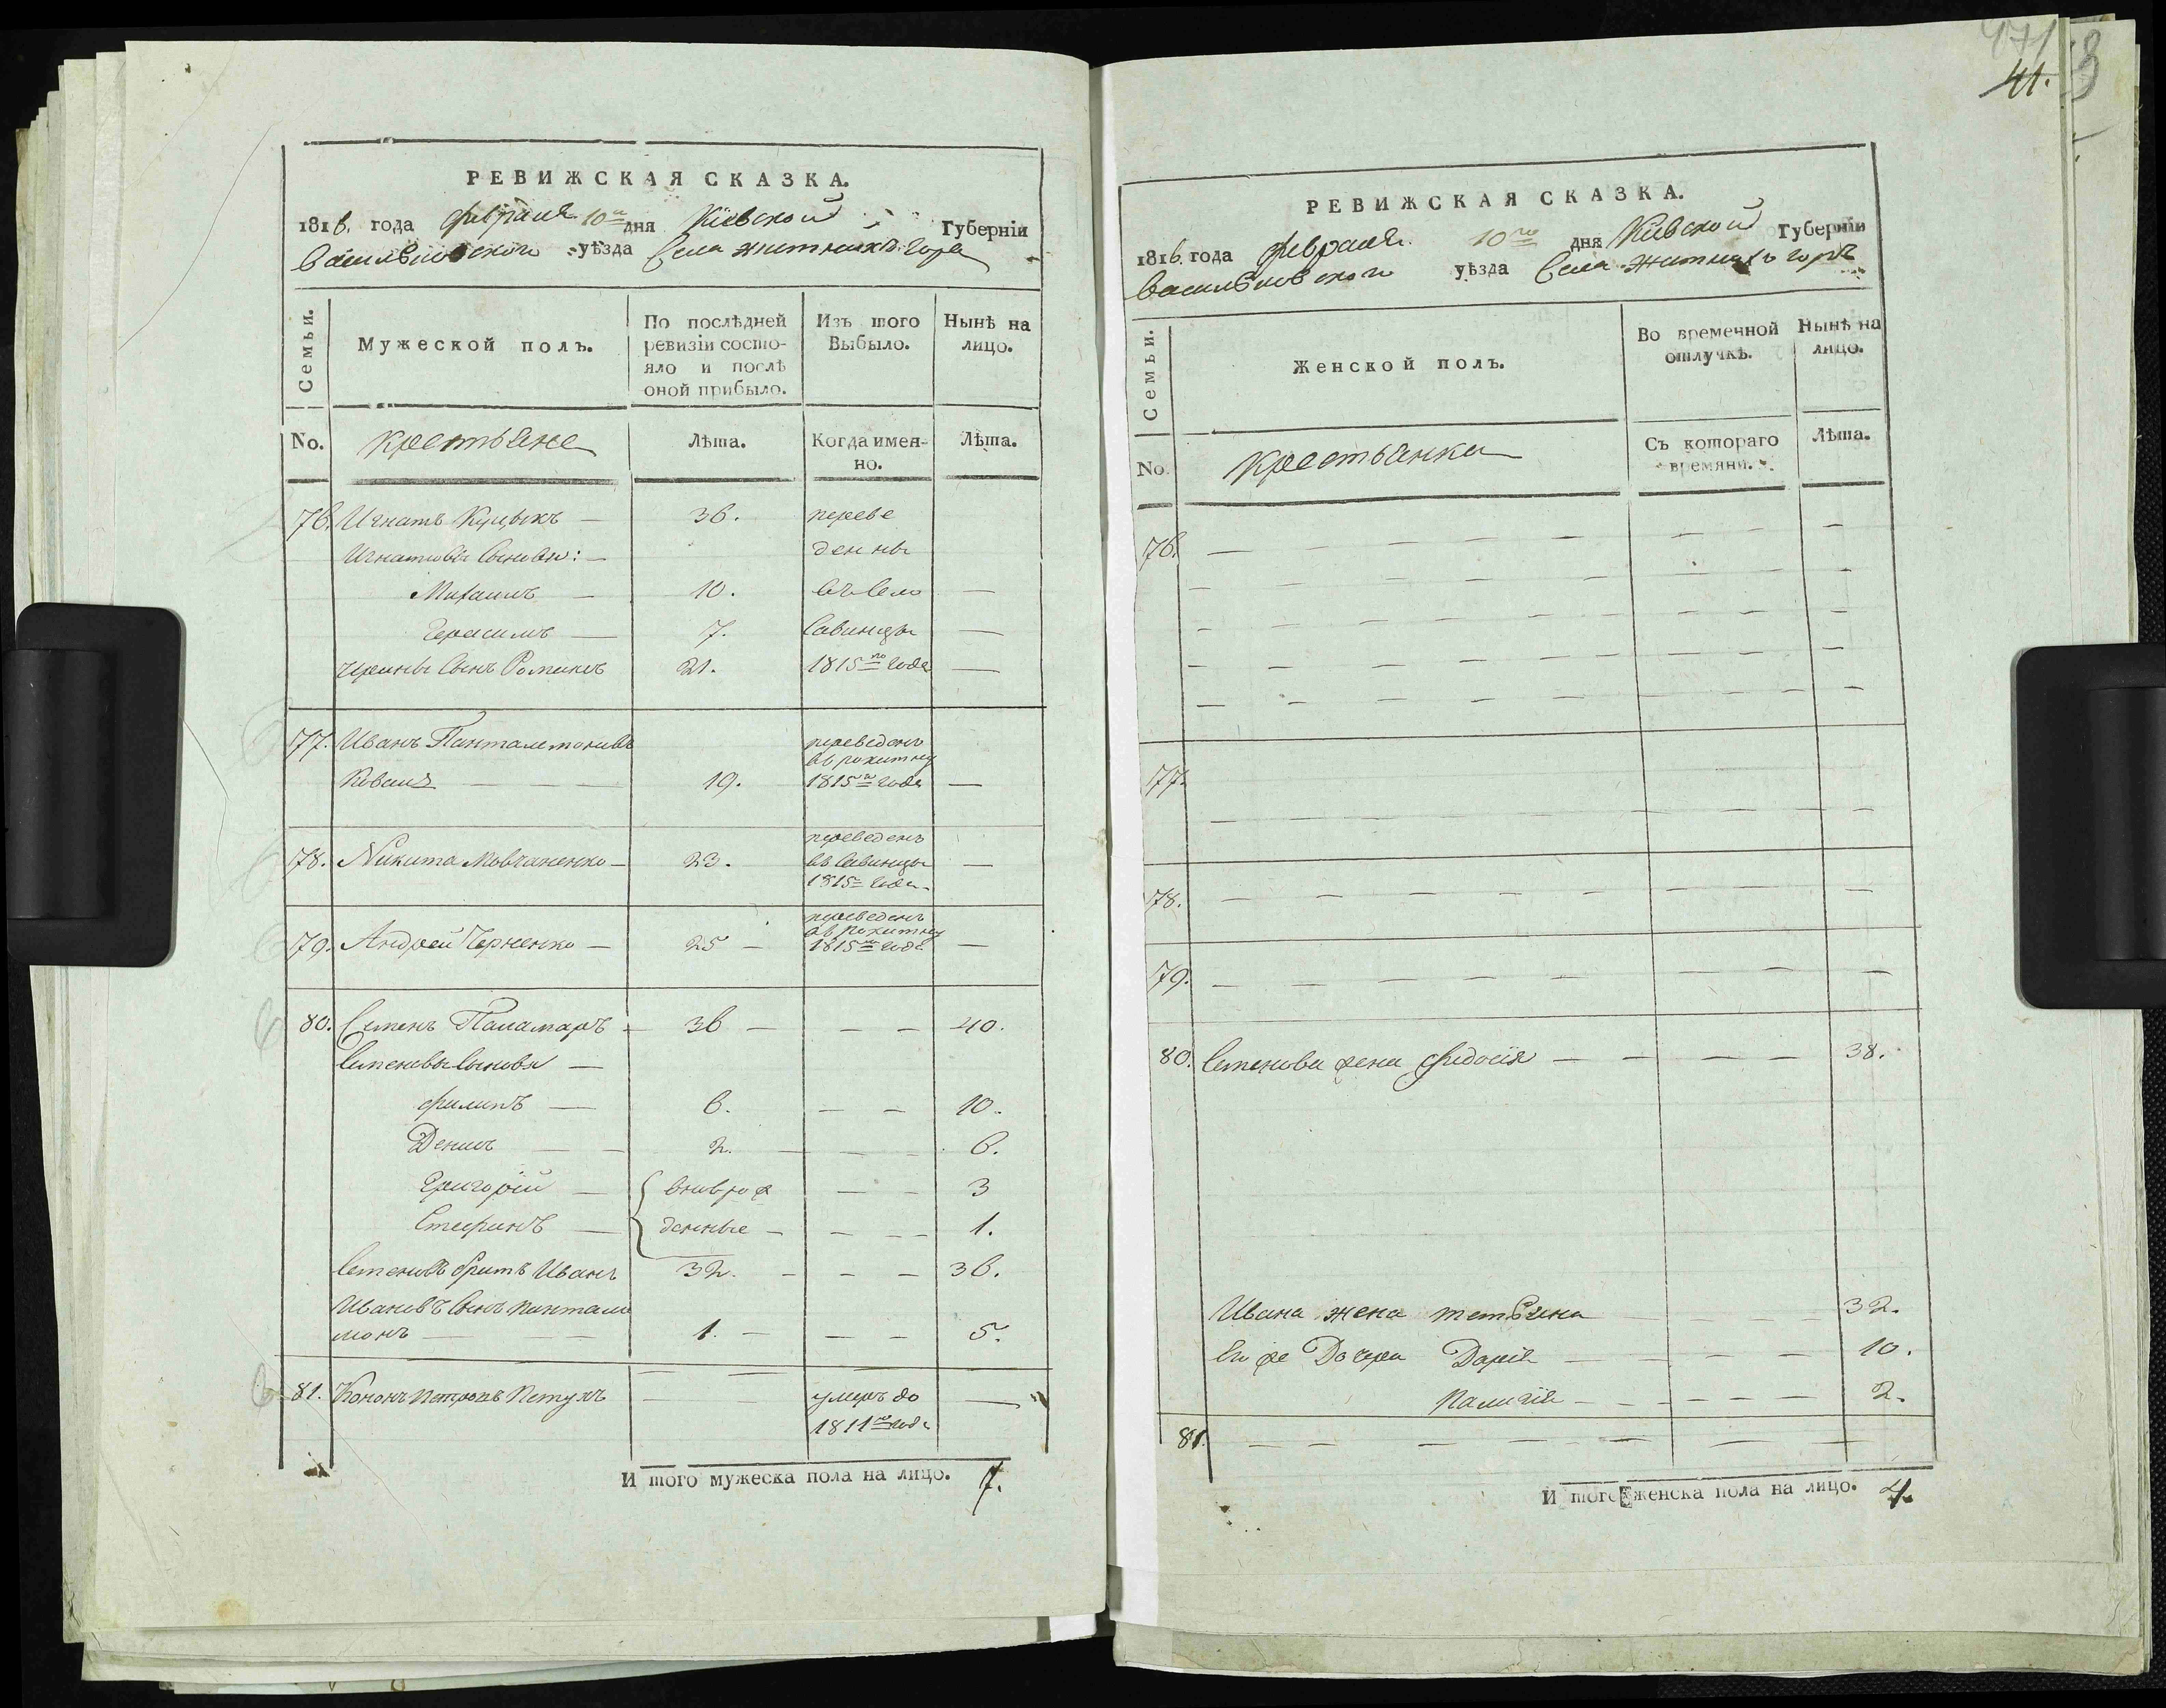 РЕВИЖСКАЯ СКАЗКА.
1816. года февраля 10го дня Кіевской Губерніи
Васильковского уѣзда Села Житнихъ горъ
Семьи.
Мужеской полъ.
По послѣдней ревизіи состояло и послѣ оной прибыло.
Изъ того Выбыло.
Нынѣ на лицо.
No. крестьяне Лѣта. Когда именно. Лѣта.
76. Игнатъ Куцыкъ — 36. переве
Игнатовы сыновья: — денны
Михаилъ — 10. въ село —
Герасимъ — 7. Савинцы —
сынъ Романъ 21. 1815го года —
77. Иванъ Панталемоновъ переведенъ
въ рокитну
Коваль — — — 19. 1815го года —
переведенъ
78. Никита Мовчаненко — 23. въ Савинцы —
1815 года
переведенъ
въ рокитну
79. Андрей Черненко — 25 — 1815го года —
80. Семенъ Паламаръ — 36 — — — 40.
Семеновы сыновья —
Филипъ — 6. — — 10.
Денисъ — — 2. — — — 6.
Григорій — вновь рож — — 3
Стефанъ — денные — — — — 1.
Семеновъ братъ Иванъ 32. — — — 36.
Ивановъ сынъ Пантале
монъ — — 1. — — — 5.
81. Кононъ Петровъ Петухъ — — умеръ до —
1811го года
И того мужеска пола на лицо. 7.
471
41.
РЕВИЖСКАЯ СКАЗКА.
1816. года февраля 10го дня Кіевской Губерніи
Васильковского уѣзда Села Житнихъ горъ
Семьи.
Женской полъ.
Во времечной отлучкѣ.
Нынѣ на лицо.
No. крестьянки Съ котораго времяни. Лѣта.
76.
77.
78.
79.
80. Семенова жена Федосія — — — — 38.
Ивана жена Тетьяна — — — 32.
Его же Дочери Дарія — — — — 10.
Палагія — — — — — — 2.
81.
И того женска пола на лицо. 4.